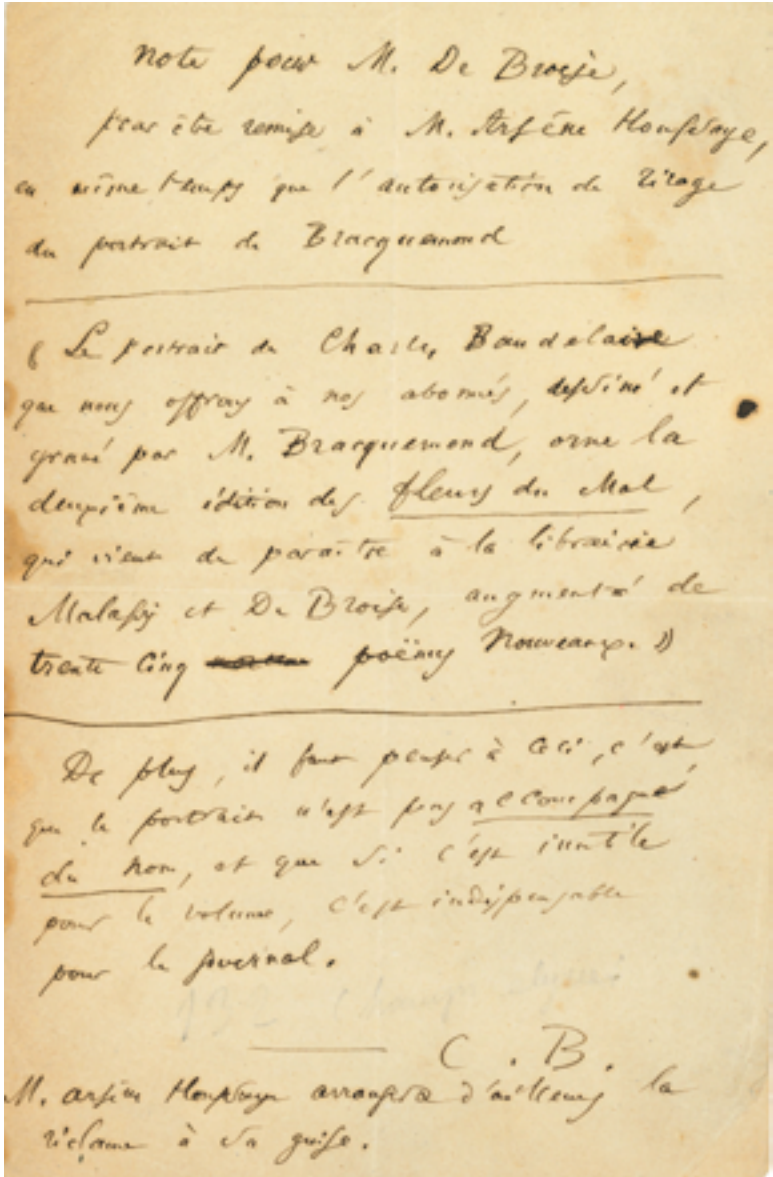 Note pour M. De Broise,
pour être remise à M. Arsène Houssaye,
en même temps que l'autorisation de tirage
du portrait de Bracquemond
« Le portrait de Charles Baudelaire
que nous offrons à nos abonnés, dessiné et
gravé par M. Bracquemond, orne la
deuxième édition des fleurs du Mal,
qui vient de paraître à la librairie
Malassis et De Broise, augmenté de
trente cinq poëmes Nouveaux. »
De plus, il faut penser à ceci, c'est
que le portrait n'est pas accompagné
du nom, et que si c'est inutile
pour le volume, c'est indispensable
pour le journal.
C. B.
M. arsène Houssaye arrangera d'ailleurs la
réclame à sa guise.